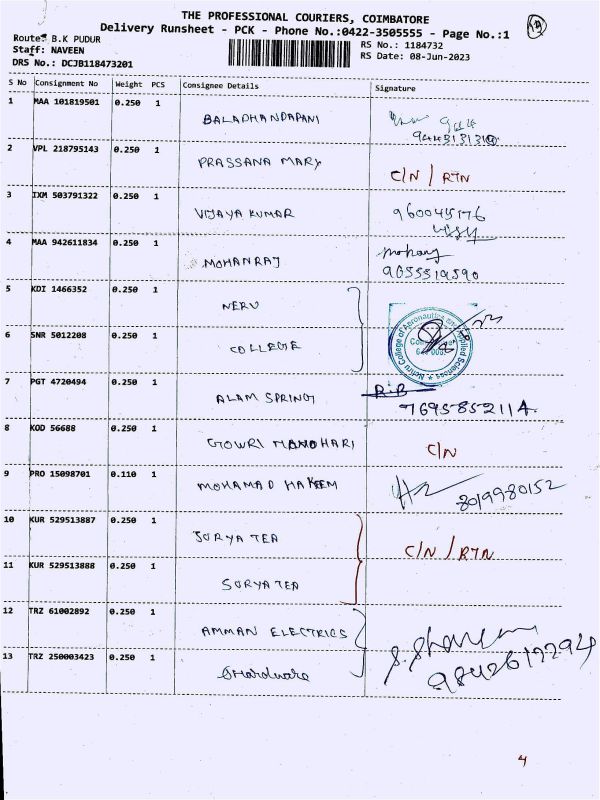 THE PROFESSIONAL COURIERS, COIMBATORE
Delivery Runsheet - PCK - Phone No.:0422-3505555 - Page No.:1
Route: B.K PUDUR
Staff: NAVEEN
DRS No.: DCJB118473201
RS No.: 1184732
RS Date: 08-Jun-2023
S No Consignment No Weight PCS Consignee Details Signature
1 MAA 101819501 0.250 1 BALADHANDAPANI
2 VPL 218795143 0.250 1 PRASSANA MARY C/N / RTN
3 IXM 503791322 0.250 1 VIJAYA KUMAR
4 MAA 942611834 0.250 1 MOHANRAJ
9655519590
5 KDI 1466352 0.250 1 NERU
6 SNR 5012208 0.250 1 COLLEGE
Nehru College of Aeronautics and Applied Sciences
7 PGT 4720494 0.250 1 ALAM SPRING
7695852114.
8 KOD 56688 0.250 1 GOWRI MANOHARI C/N
9 PRO 15098701 0.110 1 MOHAMAD HAKEEM 8019980152
10 KUR 529513887 0.250 1 SURYA TEA C/N / RTN
11 KUR 529513888 0.250 1 SURYA TEA
12 TRZ 61002892 0.250 1 AMMAN ELECTRICS
13 TRZ 250003423 0.250 1 &Hardware
9842617294
4